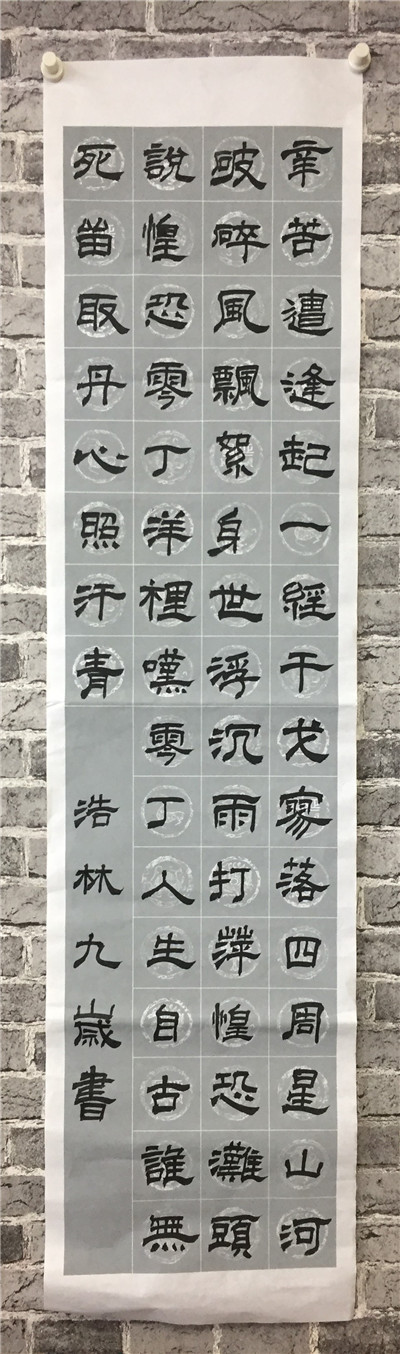 辛苦遭逢起一經干戈寥落四周星山河
破碎風飄絮身世浮沉雨打萍惶恐灘頭
說惶恐零丁洋裡嘆零丁人生自古誰無
死留取丹心照汗青
浩林九歲書